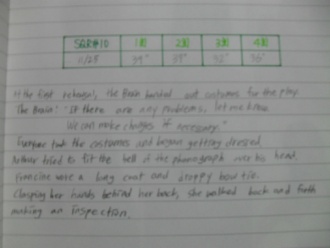 SGR#10 1회 2회 3회 4회
11/28 39" 39" 32" 35"
At the first rehearsal, the Brain handed out costumes for the play.
The Brain: "If there are any problems, let me know.
We can make changes if necessary."
Everyone took the costumes and began getting dressed.
Arthur tried to fit the bell of the phonograph over his head.
Francine wore a long coat and droopy bow tie.
Clasping her hands behind her back, she walked back and forth
making an inspection.